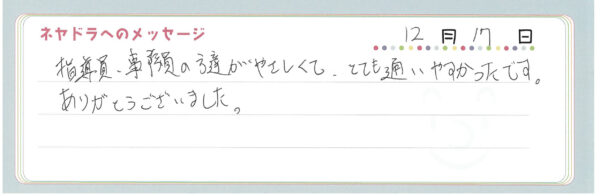 ネヤドラへのメッセージ 12月17日
指導員、事務員の方達がやさしくて、とても通いやすかったです。
ありがとうございました。